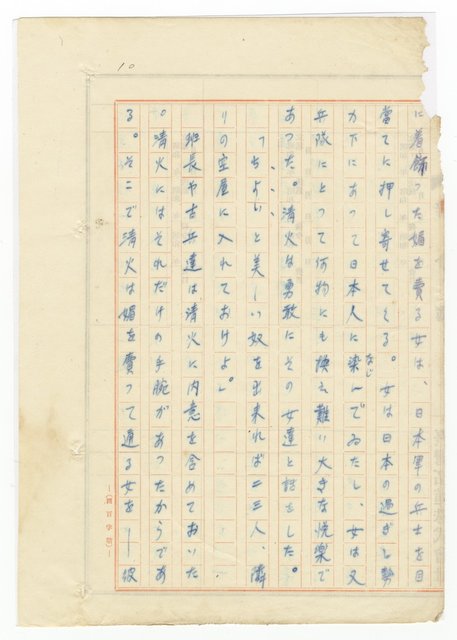 10
に着飾った媚を賣る女は、日本軍の兵士を目
當てに押し寄せてくる。女は日本の過ぎし勢
力下にあって日本人に染んでゐたし、女は又
なじ
兵隊にとって何物にも換え難い大きな悦樂で
あった。清火は勇敢にその女達と話をした。
「ちょいと美しい奴を出来れば二三人、隣
りの空屋に入れておけよ。」
班長や古兵達は清火に内意を含めておいた
。清火にはそれだけの手腕があったからであ
る。そこで清火は媚を賣って通る女を―彼